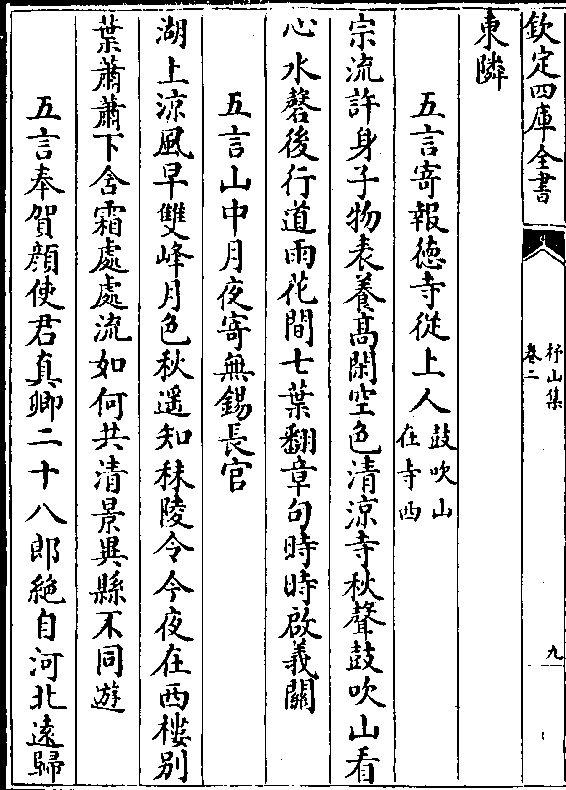 欽定四庫全書
杼山集
卷二
九
東隣
五言寄報徳寺從上人鼓吹山在寺西
宗流許身子物表養髙閑空色清涼寺秋聲鼓吹山看
心水磬後行道雨花間七葉翻章句時時啟義關
五言山中月夜寄無錫長官
湖上涼風早雙峰月色秋遥知秣陵令今夜在西樓别
葉蕭蕭下含霜處處流如何共清景異縣不同遊
五言奉賀顔使君真卿二十八郎絶自河北遠歸